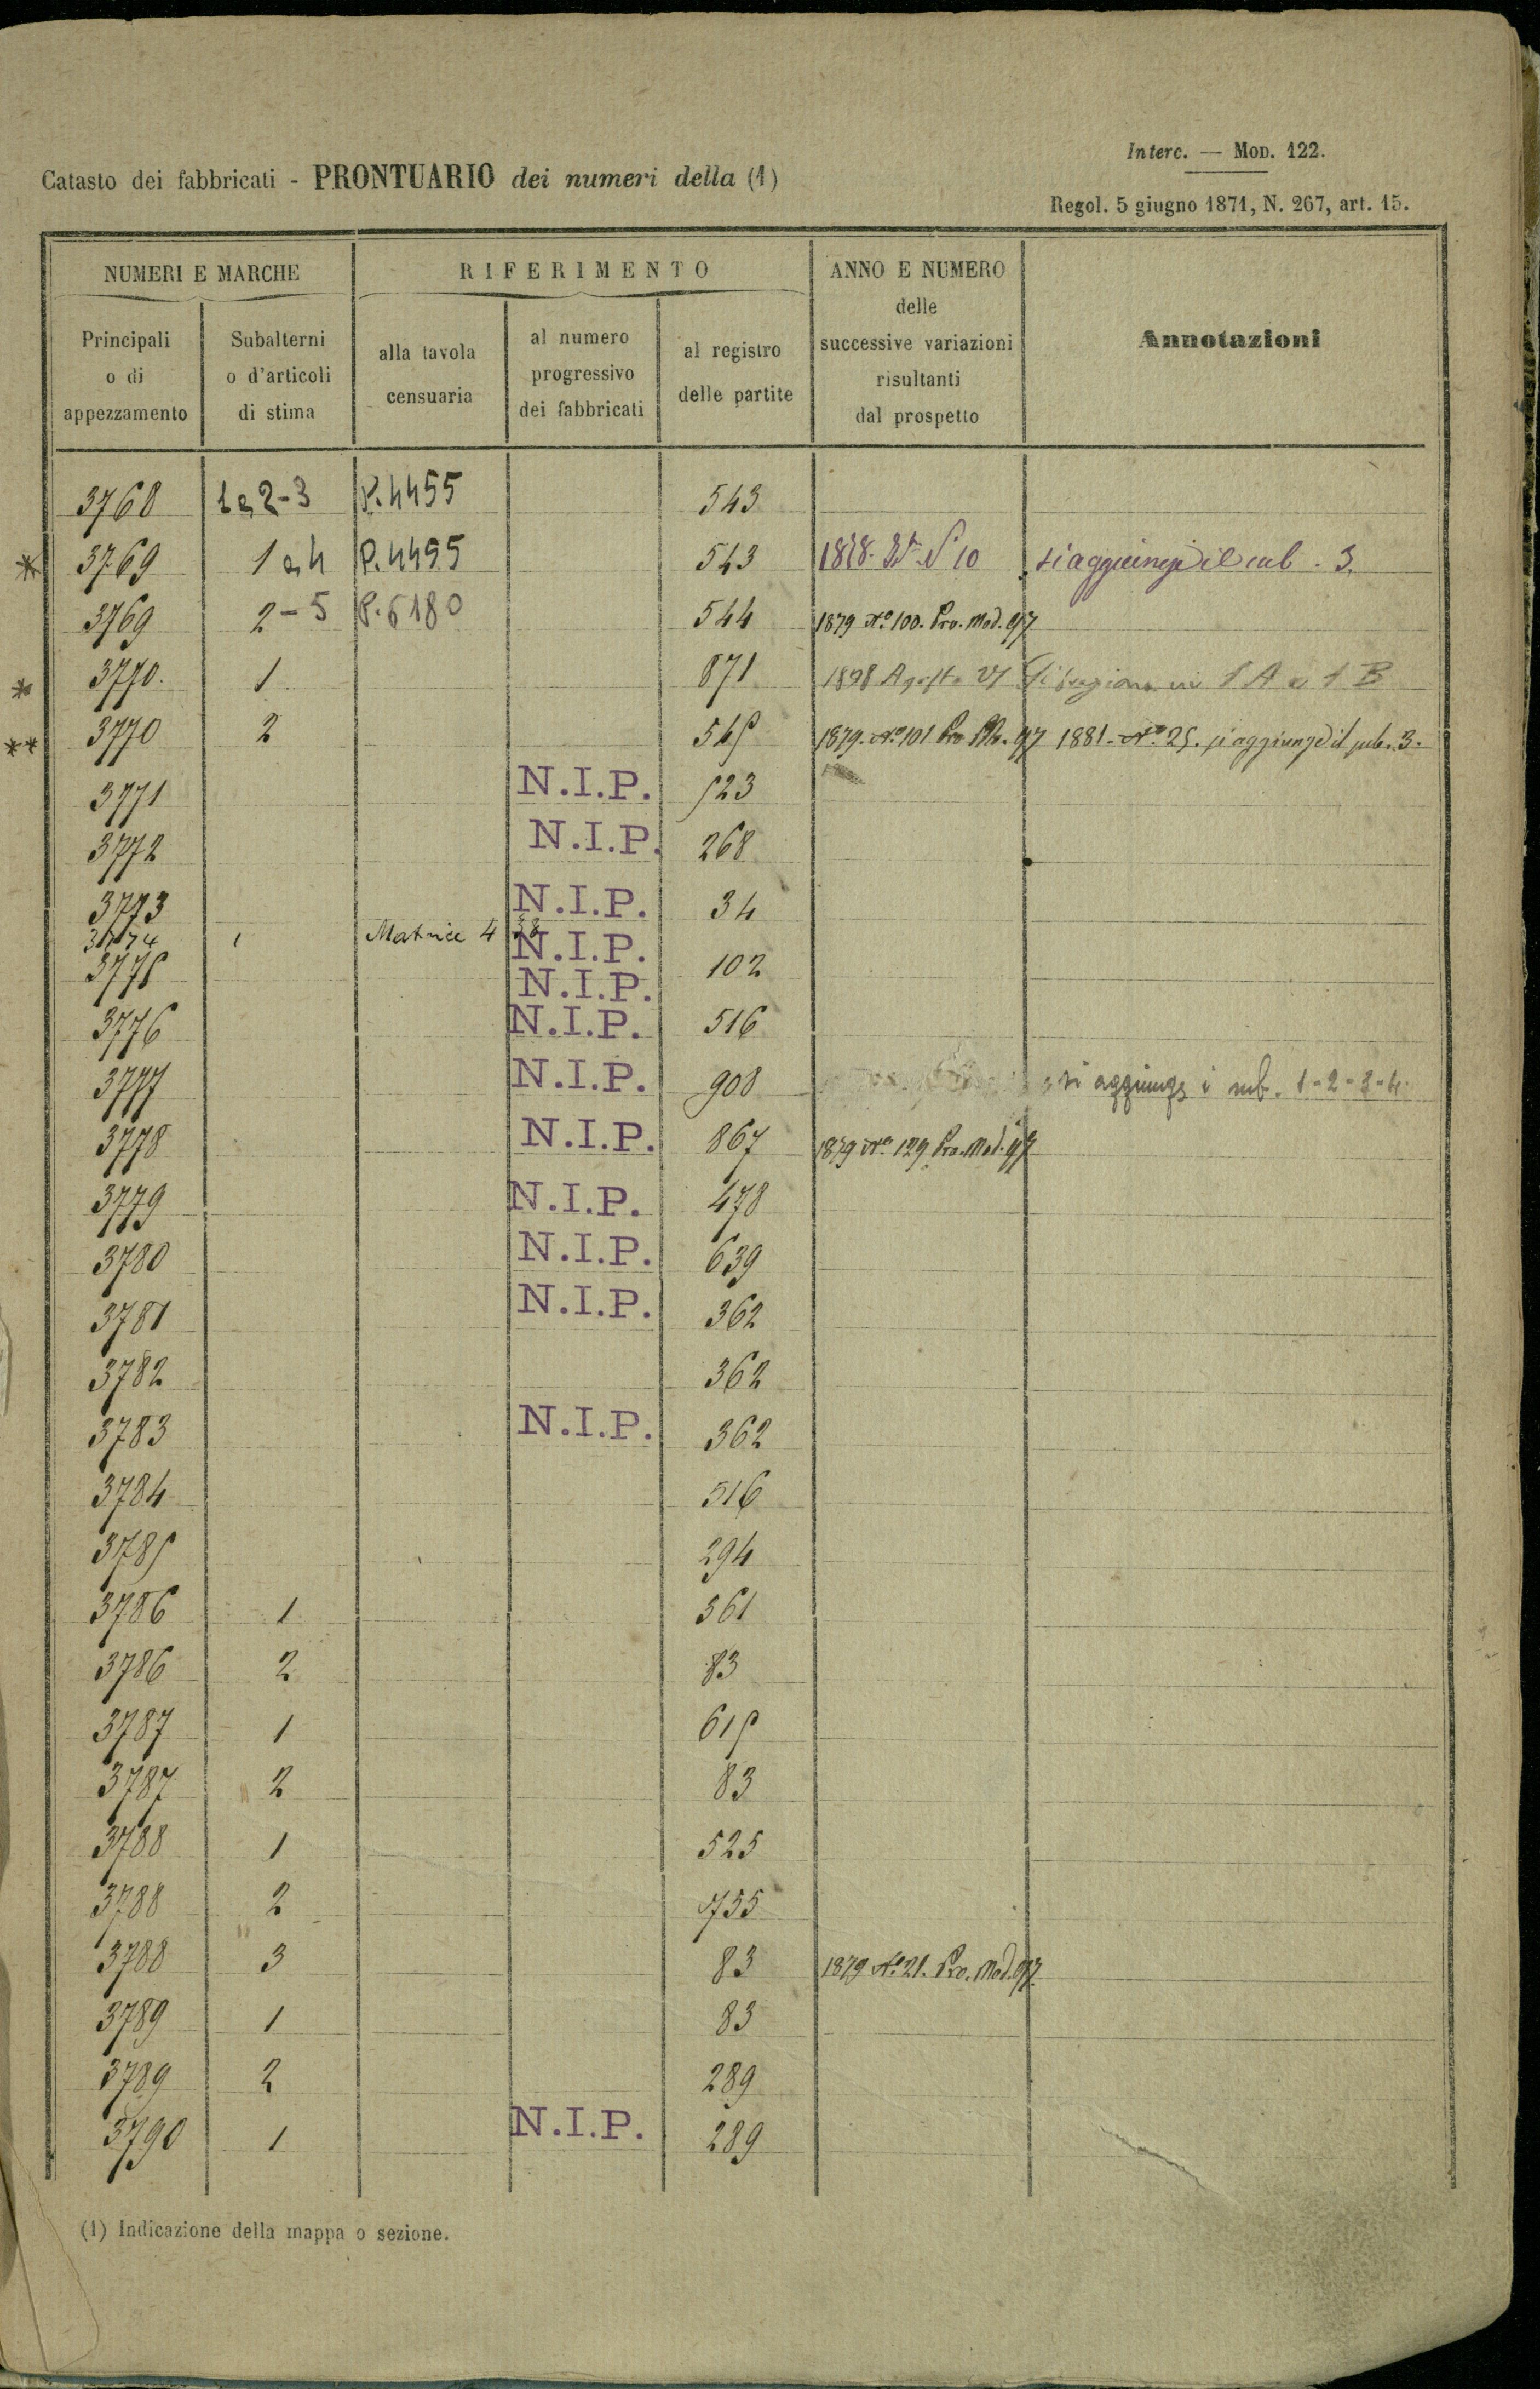 Interc. — Mod. 122.
Catasto dei fabbricati - PRONTUARIO dei numeri della (1)
Regol. 5 giugno 1871, N. 267, art. 15.
NUMERI E MARCHE
RIFERIMENTO
ANNO E NUMERO
delle
successive variazioni
risultanti
dal prospetto
Annotazioni
Principali
o di
appezzamento
Subalterni
o d'articoli
di stima
alla tavola
censuaria
al numero
progressivo
dei fabbricati
al registro
delle partite
3768 1 e 2-3 P.4455 543
* 3769 1 e 4 P.4495 543 10 si aggiunge il sub. 3.
3769 2-5 P.6180 544 1879 No. 100. Pro. Mod. 97
* 3770. 1 871 1898 Agosto 1 A e 1 B
** 3770 2 545 1879. No. 101 Pro M. 97 1881. No. 25. si aggiunge il sub. 3.
3771 N.I.P. 523
3772 N.I.P. 268
3773 N.I.P. 34
3774 1 Matrice 4 38 N.I.P.
3775 N.I.P. 102
3776 N.I.P. 516
3777 N.I.P. 908 si aggiunge i sub. 1-2-3-4.
3778 N.I.P. 867 1879 No. 129 Pro. Mod. 97
3779 N.I.P. 478
3780 N.I.P. 639
3781 N.I.P. 362
3782 362
3783 N.I.P. 362
3784 516
3785 294
3786 1 361
3786 2 83
3787 1 615
3787 2 83
3788 1 525
3788 2 755
3788 3 83 1879 No. 21. Pro. Mod. 97.
3789 1 83
3789 2 289
3790 1 N.I.P. 289
(1) Indicazione della mappa o sezione.